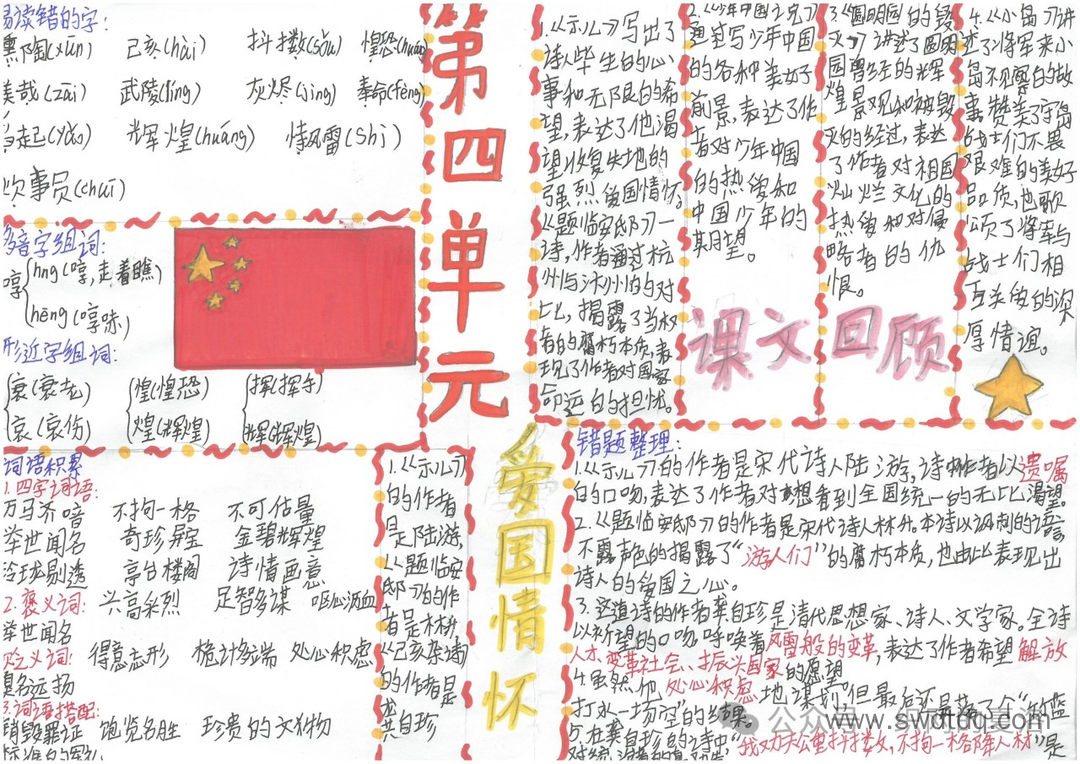 易读错的字:
熏陶(xūn) 己亥(hài) 抖擞(sǒu) 惶恐(huáng)
美哉(zāi) 武陵(líng) 灰烬(jìng) 奉命(fèng)
当起(yào) 辉煌(huáng) 恃风雷(shì)
炊事员(chuī)
多音字组词:
哼
hng(哼,走着瞧)
hēng(哼唻)
形近字组词:
衰(衰老) 惶(惶恐) 挥(挥手)
哀(哀伤) 煌(辉煌) 辉(辉煌)
词语积累
1.四字词语:
万马齐喑 不拘一格 不可估量
举世闻名 奇珍异宝 金碧辉煌
玲珑剔透 亭台楼阁 诗情画意
2.褒义词: 兴高采烈 足智多谋 呕心沥血
举世闻名
贬义词: 得意忘形 诡计多端 处心积虑
臭名远扬
3.词语搭配:
销毁罪证 饱览名胜 珍贵的文物
第四单元
1.《示儿》写出了
诗人毕生的心
事和无限的希
望,表达了他渴
望收复失地的
强烈爱国情怀。
《题临安邸》一
诗,作者通过杭
州与汴州的对
比,揭露了当权
者的腐朽本质,表
现了作者对国家
命运的担忧。
2.《少年中国之说》
通过写少年中国
的各种美好
前景,表达了作
者对少年中国
的热爱和
中国少年的
期望。
3.《圆明园的毁
灭》讲述了圆明
园曾经的辉
煌景观和被毁
灭的经过,表达
了作者对祖国
灿烂文化的
热爱和对侵
略者的仇
恨。
4.《小岛》讲
述了将军来小
岛视察的故
事,赞美了守岛
战士们不畏
艰难的美好
品质,也歌
颂了将军与
战士们相
互关爱的深
厚情谊。
课文回顾
1.《示儿》
的作者
是陆游,
《题临安
邸》的作
者是林升
《己亥杂诗》
的作者是
龚自珍
爱国情怀
错题整理:
1.《示儿》的作者是宋代诗人陆游,诗中作者以遗嘱
的口吻,表达了作者对梦想看到全国统一的无比渴望。
2.《题临安邸》的作者是宋代诗人林升。本诗以讽刺的语言
不露声色的揭露了“游人们”的腐朽本质,也由此表现出
诗人的爱国之心。
3.这道诗的作者龚自珍是清代思想家、诗人、文学家。全诗
以祈望的口吻呼唤着风雷般的变革,表达了作者希望解放
人才、变革社会、振兴国家的愿望
4.虽然他处心积虑地谋划,但最后还是落了个“竹篮
打水一场空”的结果。
5.在龚自珍的诗中“我劝天公重抖擞,不拘一格降人材”是
公众号
www.swdtdq.com